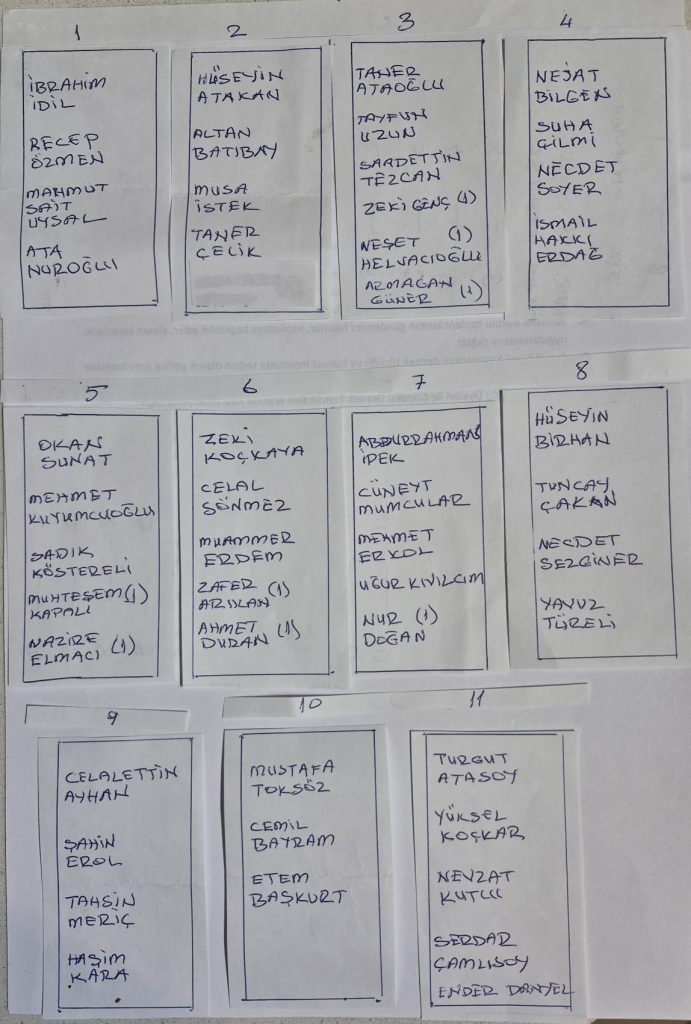 1
İBRAHİM
İDİL
RECEP
ÖZMEN
MAHMUT
SAİT
UYSAL
ATA
NUROĞLU
2
HÜSEYİN
ATAKAN
ALTAN
BATIBAY
MUSA
İSTEK
TANER
ÇELİK
3
TANER
ATAOĞLU
TAYFUN
UZUN
SAADETTİN
TEZCAN
ZEKİ GENÇ (1)
NEŞET (1)
HELVACIOĞLU
ARMAĞAN
GÜNER (1)
4
NEJAT
BİLGEN
SUHA
ÇİLMİ
NECDET
SOYER
İSMAİL
HAKKI
ERDAĞ
5
OKAN
SUNAT
MEHMET
KUYUMCUOĞLU
SADIK
KÖSTERELİ
MUHTEŞEM (1)
KAPALI
NAZİRE
ELMACI (1)
6
ZEKİ
KOÇKAYA
CELAL
SÖNMEZ
MUAMMER
ERDEM
ZAFER
ARSLAN (1)
AHMET
DURAN (1)
7
ABDURRAHMAN
İPEK
CÜNEYT
MUMCULAR
MEHMET
ERKOL
UĞUR KIVILCIM
NUR (1)
DOĞAN
8
HÜSEYİN
BİRHAN
TUNCAY
ÇAKAN
NECDET
SEZGİNER
YAVUZ
TÜRELİ
9
CELALETTİN
AYHAN
ŞAHİN
EROL
TAHSİN
MERİÇ
HAŞİM
KARA
10
MUSTAFA
TOKSÖZ
CEMİL
BAYRAM
ETEM
BAŞKURT
11
TURGUT
ATASOY
YÜKSEL
KOÇKAR
NEVZAT
KUTLU
SERDAR
ÇAMLISOY
ENDER DANYEL